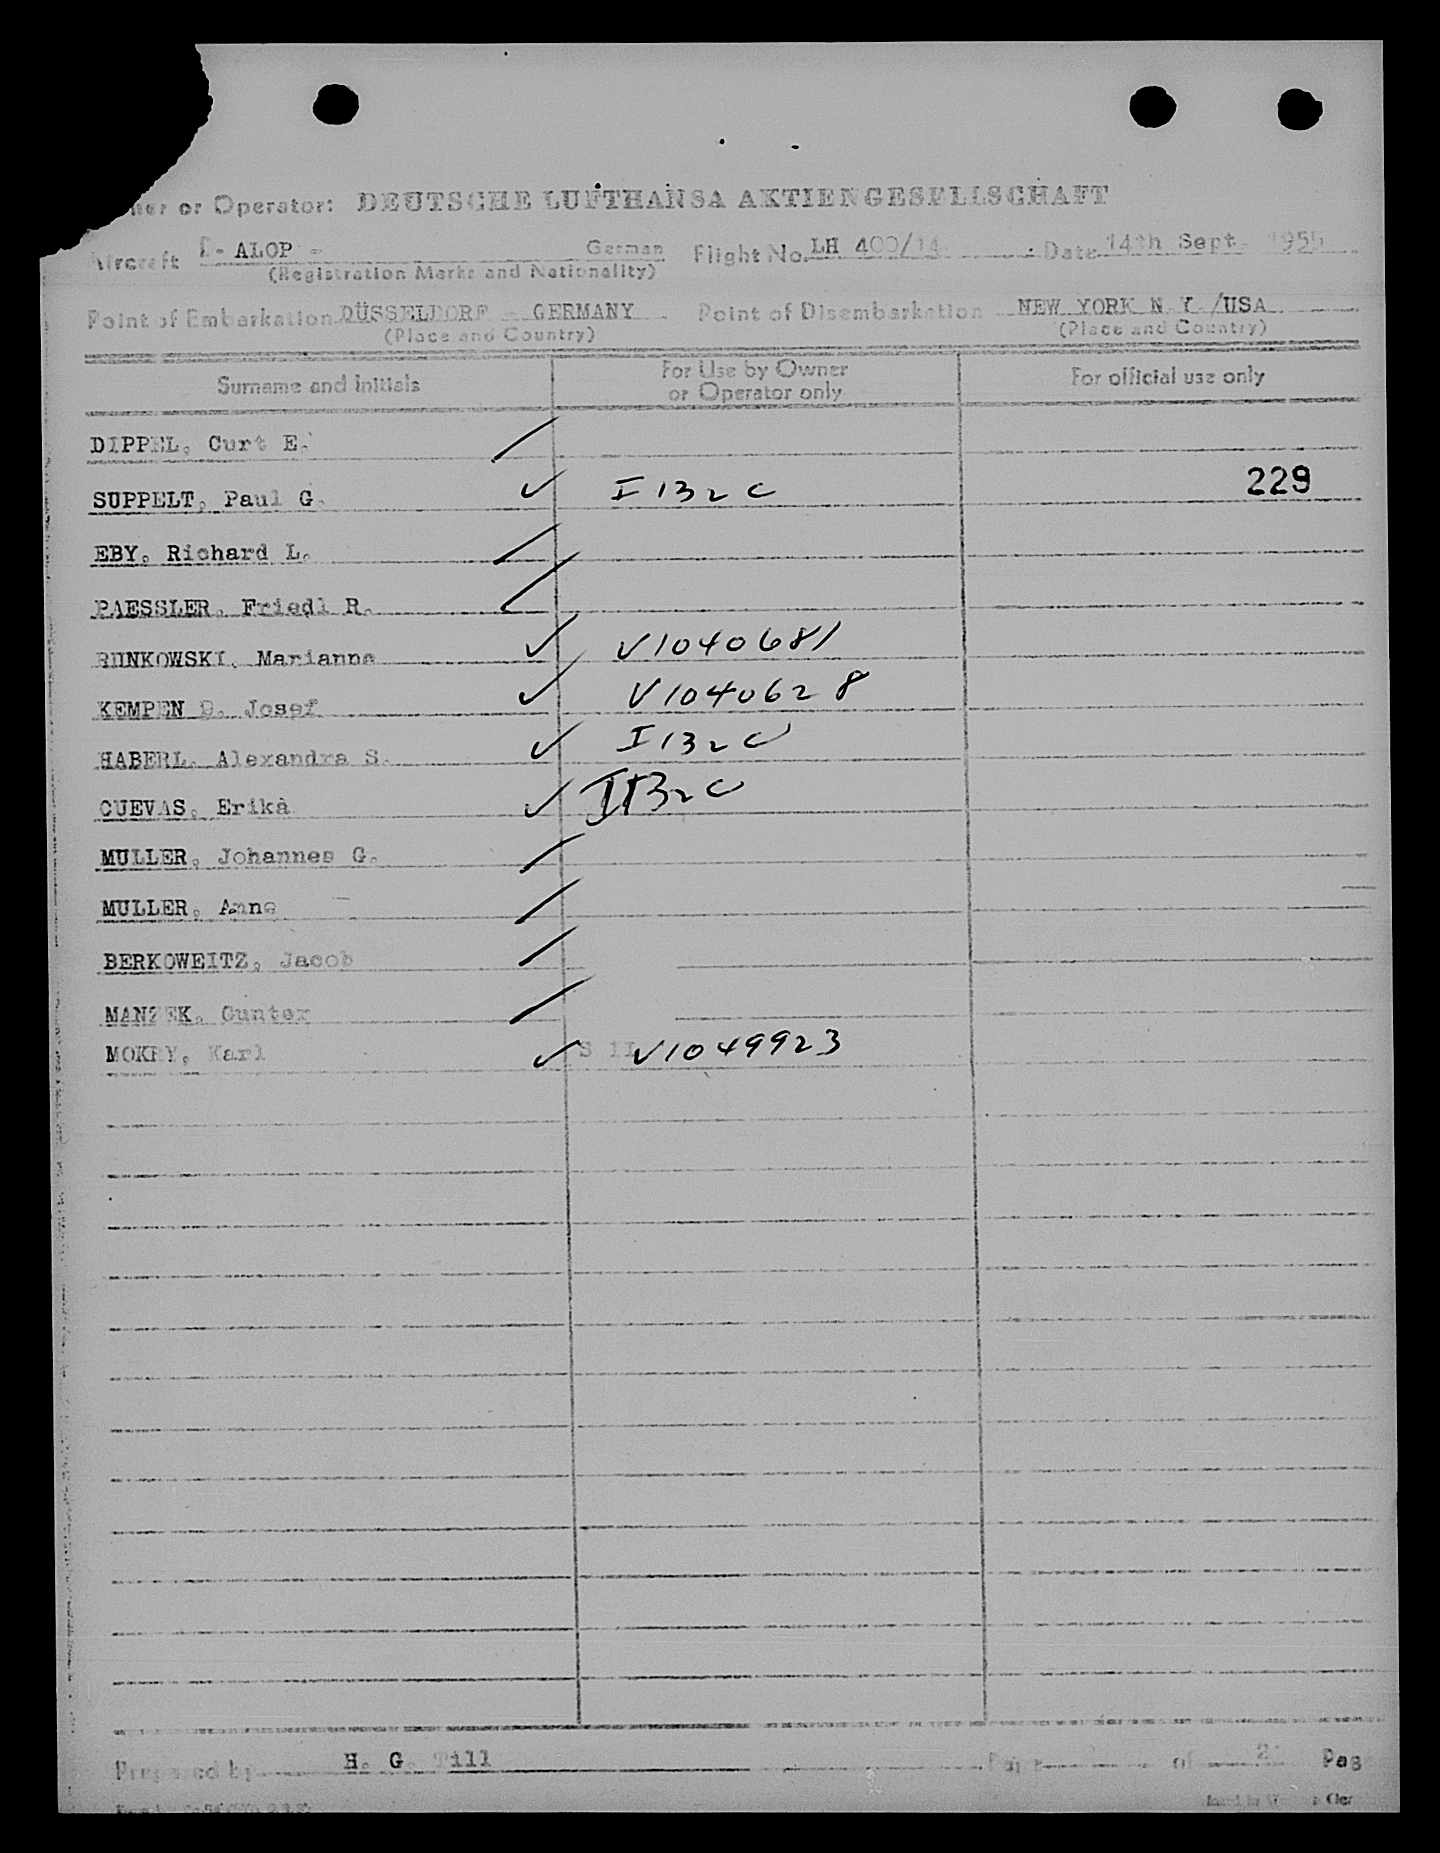 or Operator: DEUTSCHE LUFTHANSA AKTIENGESELLSCHAFT
Aircraft D-ALOP - German Flight No. LH 400/14 Date 14th Sept. 1955
(Registration Marks and Nationality)
Point of Embarkation DÜSSELDORF - GERMANY Point of Disembarkation NEW YORK N.Y./USA
(Place and Country) (Place and Country)
Surname and initials For Use by Owner or Operator only For official use only
DIPPEL, Curt E.
SUPPELT, Paul G. ✓ I 132 C 229
EBY, Richard L.
PAESSLER, Friedl R.
Marianne ✓ V1040681
KEMPEN D. Josef ✓ V1040628
HABERL, Alexandra S. ✓ I 132 C
CUEVAS, Erika ✓ I 132 C
MULLER, Johannes G.
MULLER, Anna
BERKOWEITZ, Jacob
MANZEK, Gunter
MOKRY, Karl ✓ V1049923
Prepared by H. G. Till Page of 2 Pag